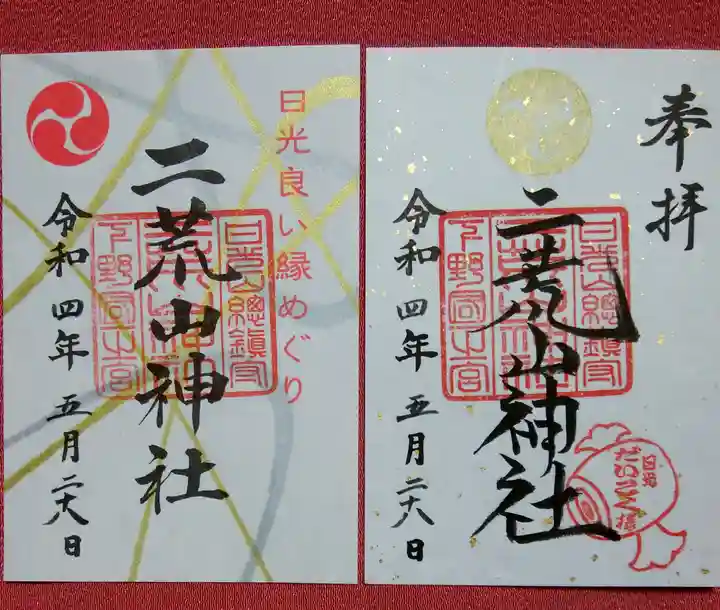 日光良い縁めぐり
二荒山神社
日光山總鎮守
下野國一宮
令和四年五月二十八日
奉拝
二荒山神社
日光山總鎮守
下野國一宮
令和四年五月二十八日
日光
だいこく様